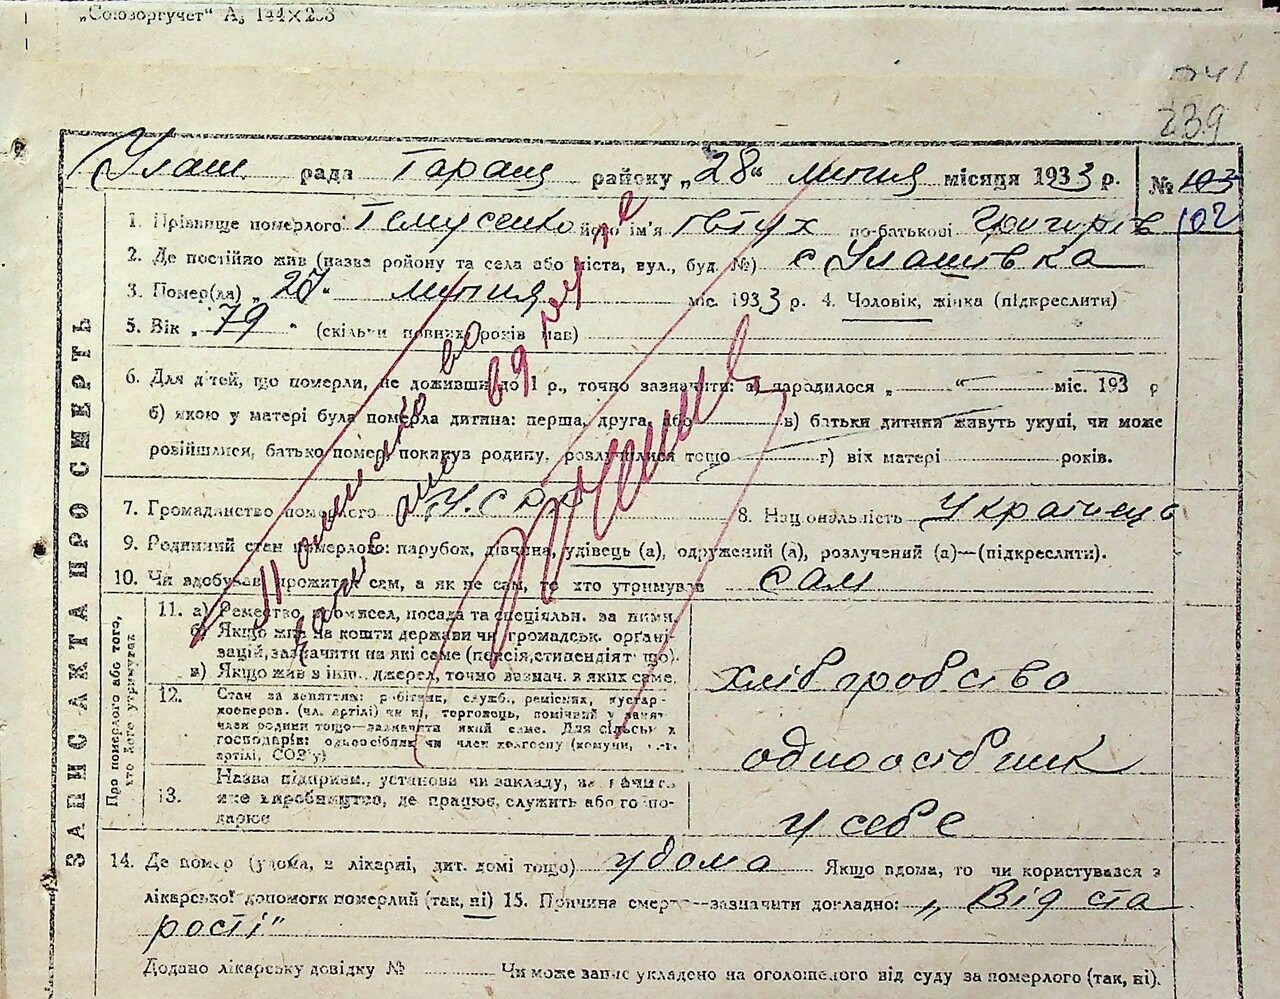 „Союзоргучет“ А₅ 144×203
239
Улаш. рада Таращ району „28“ липня місяця 1933 р. № 103
102
1. Прізвище померлого його ім'я Євтух по-батькові Григорів
2. Де постійно жив (назва району та села або міста, вул., буд. №) с Улашівка
3. Помер(ла) „27“ липня міс. 1933 р. 4. Чоловік, жінка (підкреслити)
5. Вік „79“ (скільки повних років мав)
6. Для дітей, що померли, не доживши до 1 р., точно зазначити: а) народилося „ “ міс. 193 р
б) якою у матері була померла дитина: перша, друга, або в) батьки дитини живуть укупі, чи може
розійшлися, батько помер, покинув родину, розлучилися тощо г) вік матері років.
7. Громадянство померлого У.С.Р.Р. 8. Національність Українець
9. Родинний стан померлого: парубок, дівчина, удівець (а), одружений (а), розлучений (а)—(підкреслити).
10. Чи здобував прожиток сам, а як не сам, то хто утримував сам
ЗАПИС АКТА ПРО СМЕРТЬ
Про померлого або того, хто його утримував
11. а) Ремество, промисел, посада та спеціяльн. за ними.
б) Якщо жив на кошти держави чи громадськ. органі-
зацій, зазначити на які саме (пенсія, стипендія тощо).
в) Якщо жив з інш. джерел, точно зазнач. з яких саме.
хліборобство
12. Стан за заняттям: робітник, служб., ремісник, кустар-
кооперов. (чл. артілі) чи ні, торговець, помічний у занят.
член родини тощо—зазначити який саме. Для сільськ.
господарів: одноосібник чи член колгоспу (комуни,
артілі, СОЗ'у)
одноосібник
13. Назва підприєм., установи чи закладу,
яке виробництво, де працює, служить або госпо-
дарює
у себе
14. Де помер (удома, в лікарні, дит. домі тощо) удома Якщо вдома, то чи користувався з
лікарської допомоги померлий (так, ні) 15. Причина смерти—зазначити докладно: „Від ста
рості“
Додано лікарську довідку № Чи може запис укладено на оголошеного від суду за померлого (так, ні).